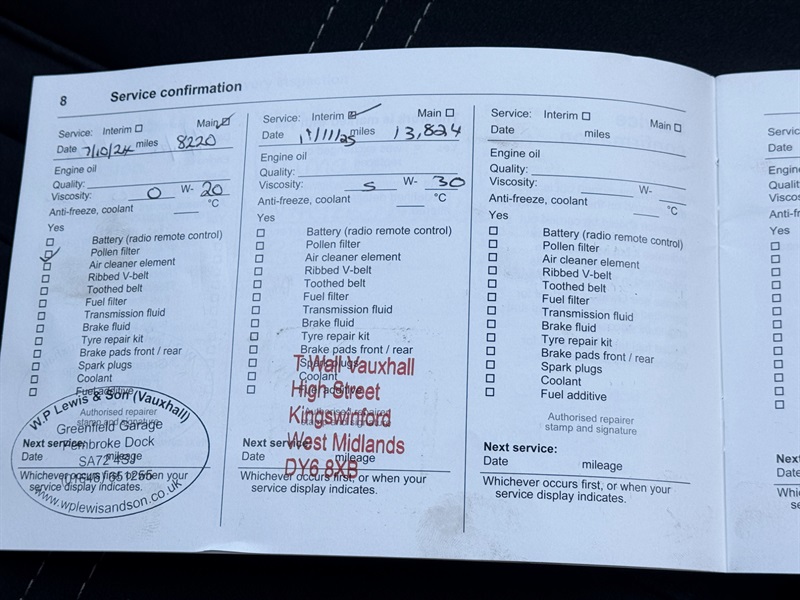 8 Service confirmation
Service: Interim Main
Date 7/10/24 miles 8220
Engine oil
Quality:
Viscosity: 0 W- 20
Anti-freeze, coolant °C
Yes
Battery (radio remote control)
Pollen filter
Air cleaner element
Ribbed V-belt
Toothed belt
Fuel filter
Transmission fluid
Brake fluid
Tyre repair kit
Brake pads front / rear
Spark plugs
Coolant
Fuel additive
W.P Lewis & Son (Vauxhall)
Authorised repairer
stamp and signature
Greenfield Garage
Pembroke Dock
SA72 4SJ
(01646) 651255
www.wplewisandson.co.uk
Next service:
Date mileage
Whichever occurs first, or when your
service display indicates.
Service: Interim Main
Date 11/11/25 miles 13,824
Engine oil
Quality:
Viscosity: 5 W- 30
Anti-freeze, coolant °C
Yes
Battery (radio remote control)
Pollen filter
Air cleaner element
Ribbed V-belt
Toothed belt
Fuel filter
Transmission fluid
Brake fluid
Tyre repair kit
Brake pads front / rear
Spark plugs
Coolant
Fuel additive
T Wall Vauxhall
High Street
Kingswinford
West Midlands
DY6 8XB
Authorised repairer
stamp and signature
Next service:
Date mileage
Whichever occurs first, or when your
service display indicates.
Service: Interim Main
Date miles
Engine oil
Quality:
Viscosity: W-
Anti-freeze, coolant °C
Yes
Battery (radio remote control)
Pollen filter
Air cleaner element
Ribbed V-belt
Toothed belt
Fuel filter
Transmission fluid
Brake fluid
Tyre repair kit
Brake pads front / rear
Spark plugs
Coolant
Fuel additive
Authorised repairer
stamp and signature
Next service:
Date mileage
Whichever occurs first, or when your
service display indicates.
Date
Yes